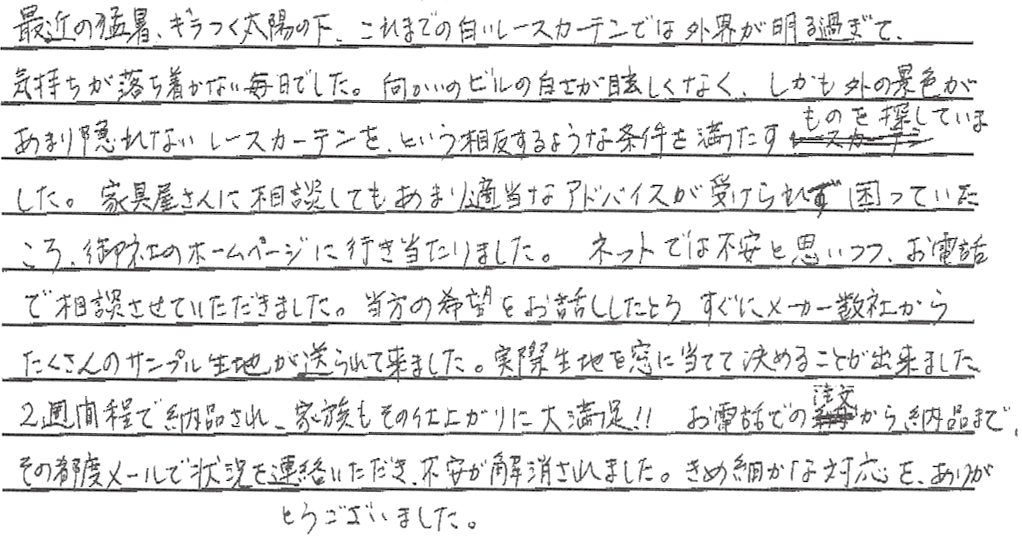 最近の猛暑、ギラつく太陽の下、これまでの白いレースカーテンでは外界が明る過ぎて、
気持ちが落ち着かない毎日でした。向かいのビルの白さが眩しくなく、しかも外の景色が
あまり隠れないレースカーテンを、という相反するような条件を満たすものを探していま
した。家具屋さんに相談してもあまり適当なアドバイスが受けられず困っていた
ころ、御社のホームページに行き当たりました。ネットでは不安と思いつつ、お電話
で相談させていただきました。当方の希望をお話ししたところすぐにメーカー数社から
たくさんのサンプル生地が送られて来ました。実際生地を窓に当てて決めることが出来ました
2週間程で納品され、家族もその仕上がりに大満足!! お電話での注文から納品まで、
その都度メールで状況を連絡いただき、不安が解消されました。きめ細かな対応を、ありが
とうございました。